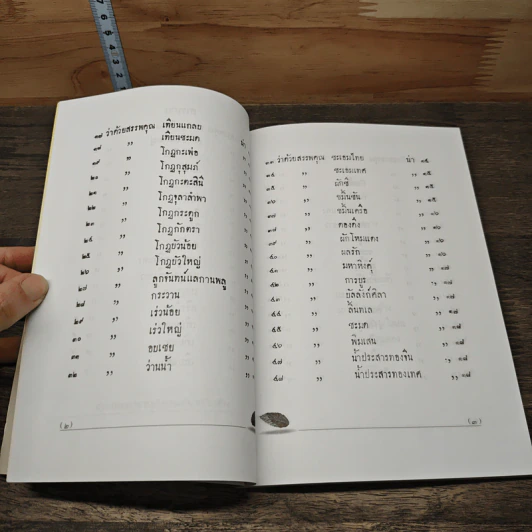 ๑๗ ว่าด้วยสรรพคุณ เทียนแกลบ
๑๘ ,, เทียนขะมด
๑๙ ,, โกฏกะเพ่อ
๒๐ ,, โกฏกุสุมภ์
๒๑ ,, โกฏกะตะสินี
๒๒ ,, โกฏจุลาลำพา
๒๓ ,, โกฏกระดูก
๒๔ ,, โกฏกักตรา
๒๕ ,, โกฏบัวน้อย
๒๖ ,, โกฏบัวใหญ่
๒๗ ,, ลูกจันทน์แลกานพลู
๒๘ ,, กระวาน
๒๙ ,, เร่วน้อย
๓๐ ,, เร่วใหญ่
๓๑ ,, อบเชย
๓๒ ,, ว่านน้ำ
(๒)
๓๓ ว่าด้วยสรรพคุณ ชะเอมไทย น่า ๑๕
๓๔ ,, ชะเอมเทศ ,, ๑๕
๓๕ ,, ผักชี ,, ๑๕
๓๖ ,, ขมิ้นชัน ,, ๑๕
๓๗ ,, ขมิ้นเครือ ,, ๑๖
๓๘ ,, ดองดึง ,, ๑๖
๓๙ ,, ผักโหมแดง ,, ๑๖
๔๐ ,, ผลรัก ,, ๑๖
๔๑ ,, มหาหิงคุ์ ,, ๑๖
๔๒ ,, การบูร ,, ๑๖
๔๓ ,, ,, ๑๖
๔๔ ,, ลิ้นทเล ,, ๑๗
๔๕ ,, ชะมด ,, ๑๗
๔๖ ,, พิมเสน ,, ๑๗
๔๗ ,, น้ำประสารทองจีน ,, ๑๗
๔๘ ,, น้ำประสารทองเทศ ,, ๑๗
(๓)